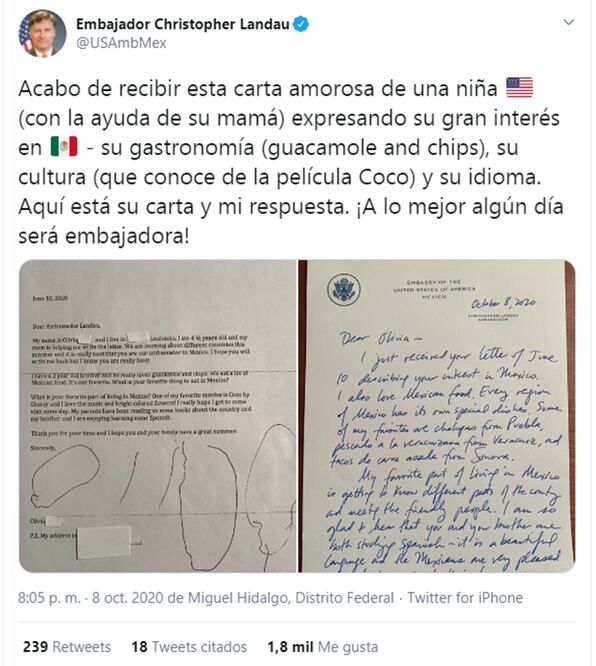 Embajador Christopher Landau
@USAmbMex
Acabo de recibir esta carta amorosa de una niña
(con la ayuda de su mamá) expresando su gran interés
en - su gastronomía (guacamole and chips), su
cultura (que conoce de la película Coco) y su idioma.
Aquí está su carta y mi respuesta. ¡A lo mejor algún día
será embajadora!
June 10, 2020
Dear Ambassador Landau,
My name is Olivia and I live in Louisiana. I am 4 ½ years old and my
mom is helping me write the letter. We are learning about different countries this
summer and it is really neat that you are our ambassador to Mexico. I hope you will
write me back but I know you are really busy.
I have a 2 year old brother and he really loves guacamole and chips. We eat a lot of
Mexican food. It's our favorite. What is your favorite thing to eat in Mexico?
What is your favorite part of living in Mexico? One of my favorite movies is Coco by
Disney and I love the music and bright colored flowers! I really hope I get to come
visit some day. My parents have been reading us some books about the country and
my brother and I are enjoying learning some Spanish.
Thank you for your time and I hope you and your family have a great summer.
Sincerely,
Olivia
P.S. My address is
EMBASSY OF THE
UNITED STATES OF AMERICA
MEXICO
October 8, 2020
CHRISTOPHER LANDAU
AMBASSADOR
Dear Olivia —
I just received your letter of June
10 describing your interest in Mexico.
I also love Mexican food. Every region
of Mexico has its own special dishes. Some
of my favorites are chalupas from Puebla,
pescado a la veracruzana from Veracruz, and
tacos de carne asada from Sonora.
My favorite part of living in Mexico
is getting to know different parts of the country
and meeting the friendly people. I am so
glad to hear that you and your brother are
both studying Spanish - it is a beautiful
language and the Mexicans are very pleased
8:05 p. m. · 8 oct. 2020 de Miguel Hidalgo, Distrito Federal · Twitter for iPhone
239 Retweets 18 Tweets citados 1,8 mil Me gusta